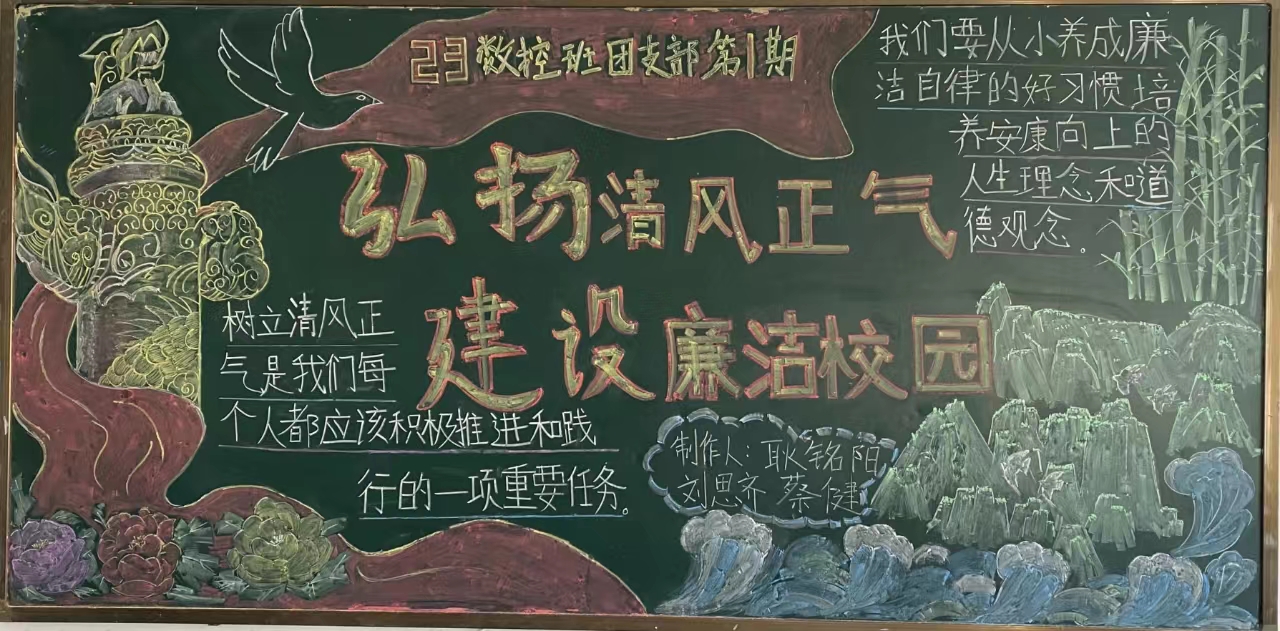 23数控班团支部第1期
弘扬清风正气
建设廉洁校园
我们要从小养成廉
洁自律的好习惯培
养安康向上的
人生理念和道
德观念。
树立清风正
气是我们每
个人都应该积极推进和践
行的一项重要任务。
制作人:耿铭阳
刘思齐 蔡健